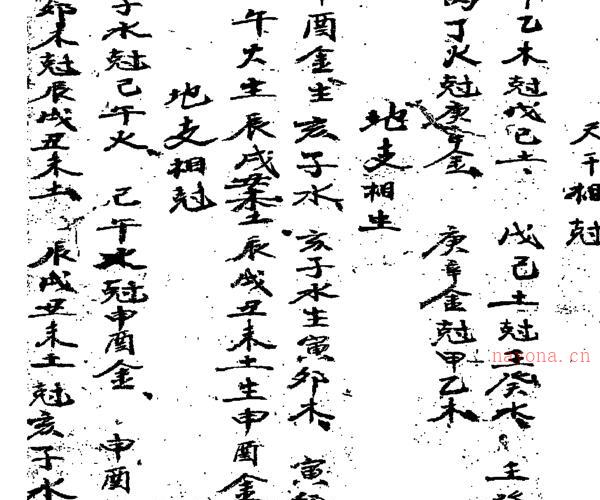 天干相尅
甲乙木尅戊己土、戊己土尅壬癸水、壬
丙丁火尅庚辛金、庚辛金尅甲乙木、
地支相生
申酉金生亥子水、亥子水生寅卯木、寅
午火生辰戌丑未土、辰戌丑未土生申酉金
地支相尅
子水尅己午火、己午火尅申酉金、申酉
卯木尅辰戌丑未土、辰戌丑未土尅亥子水
narona.cn